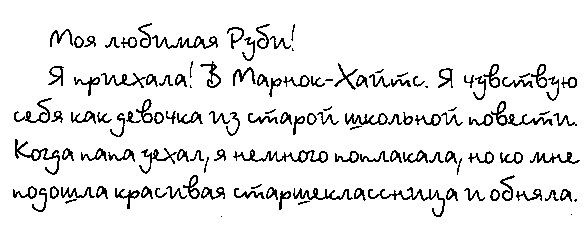 Моя любимая Руби!
Я приехала! В Марнок-Хайтс. Я чувствую
себя как девочка из старой школьной повести.
Когда папа уехал, я немного поплакала, но ко мне
подошла красивая старшеклассница и обняла.